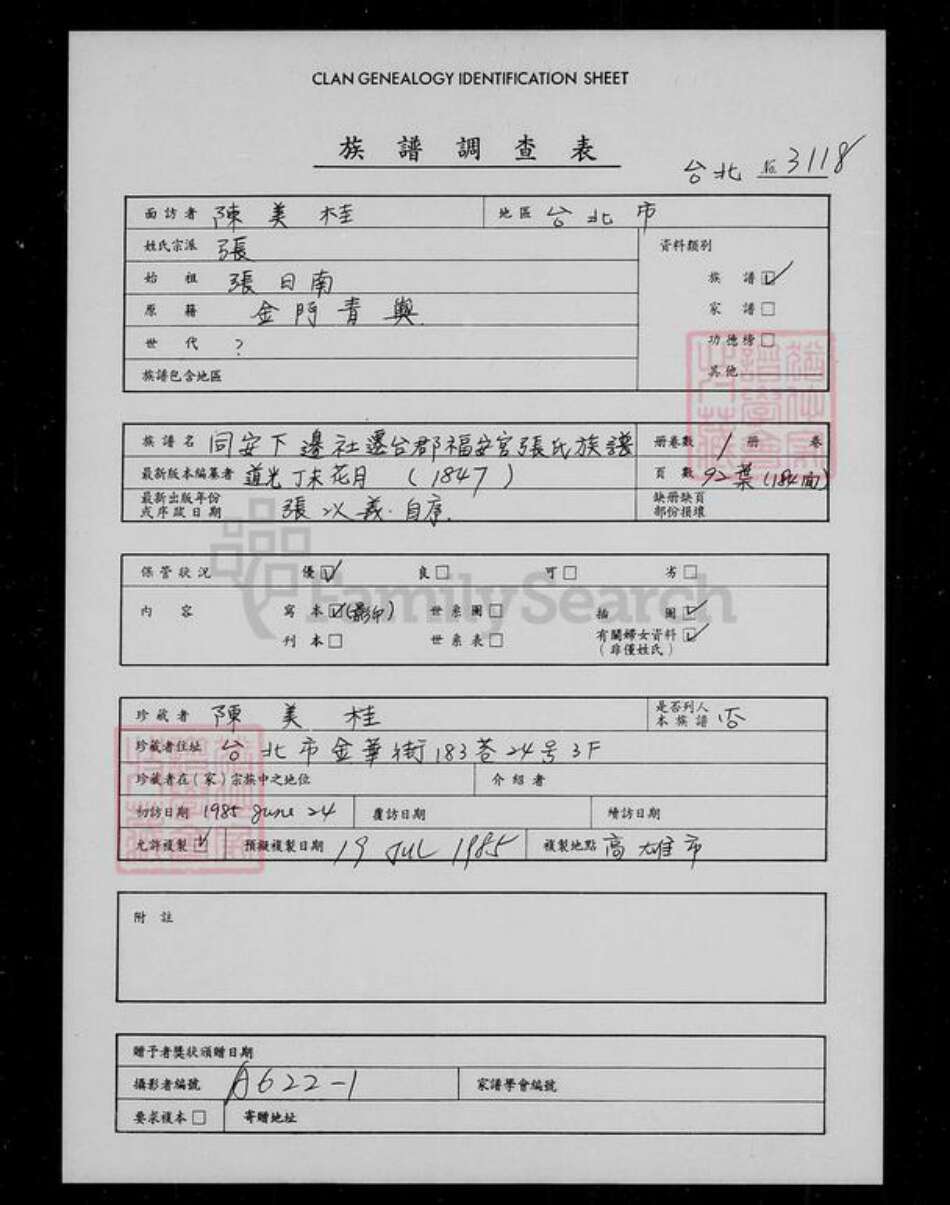 CLAN GENEALOGY IDENTIFICATION SHEET
族譜調查表
台北 No. 3118
面訪者 陳美桂 地區 台北市
姓氏宗派 張 資料類別
始祖 張日南 族譜 ☑
原籍 金門青嶼 家譜 □
世代 ? 功德榜 □
族譜包含地區 其他
族譜名 同安下邊社遷台郡福安宮張氏族譜 册卷數 1 册 卷
最新版本編纂者 道光丁未花月 (1847) 頁數 92葉(184面)
最新出版年份 或序跋日期 張以義·自序. 缺册缺頁 部份損壞
保管狀況 優 ☑ 良 □ 可 □ 劣 □
內容 寫本 ☑ (影印) 世系圖 □ 插圖 ☑
刊本 □ 世系表 □ 有關婦女資料 ☑ (非僅姓氏)
FamilySearch
珍藏者 陳美桂 是否列入 本族譜 否
珍藏者住址 台北市金華街183巷24号3F
珍藏者在(家)宗族中之地位 介紹者
初訪日期 1985 June 24 覆訪日期 續訪日期
允許複製 ☑ 預擬複製日期 19 JUL 1985 複製地點 高雄市
附註
贈予者獎狀頒贈日期
攝影者編號 A622-1 家譜學會編號
要求複本 □ 寄贈地址